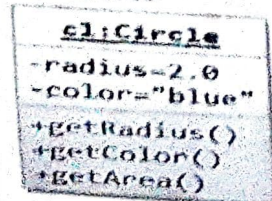 c1:Circle
-radius=2.0
-color="blue"
+getRadius()
+getColor()
+getArea()